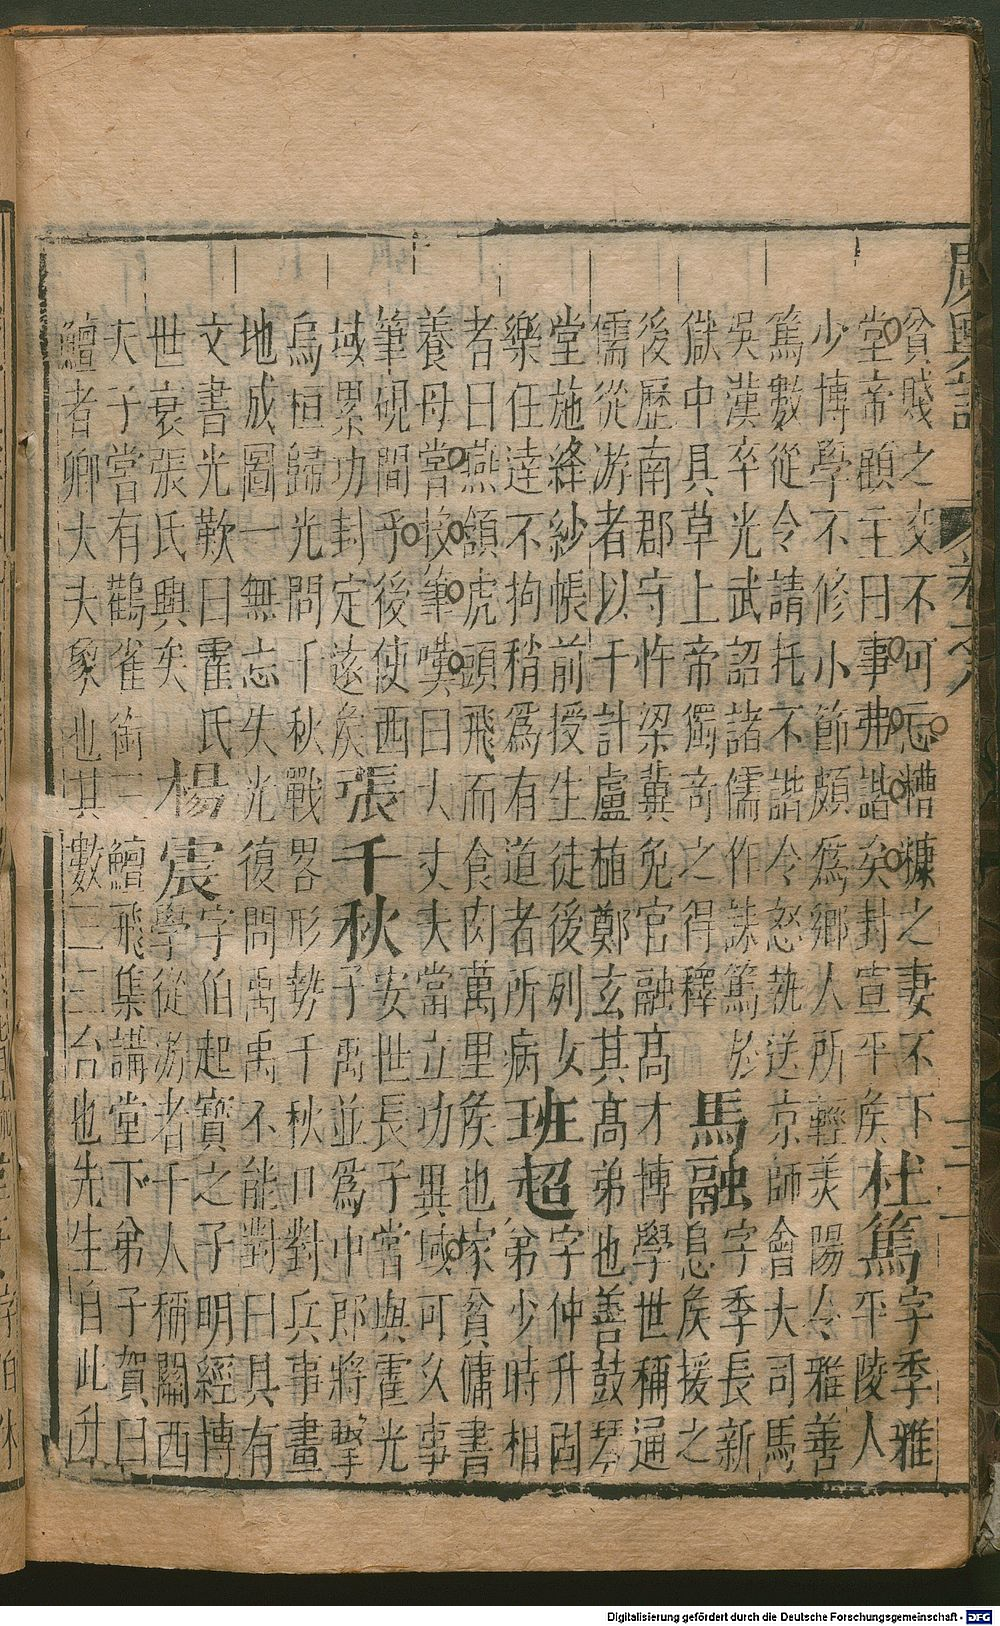 廣輿記
貧賤之交不可忘糟糠之妻不下
堂帝顧主曰事弗諧矣封宣平矦
杜篤
字季雅
平陵人
少博學不修小節頗爲鄉人所輕美陽令雅善
篤數從令請托不諧令怒執送京師會大司馬
吳漢卒光武詔諸儒作誄篤於
獄中具草上帝獨奇之得釋
馬融
字季長新
息矦援之
後歷南郡守忤梁冀免官融高才博學世稱通
儒從游者以千計盧植鄭玄其高弟也善鼓琴
堂施絳紗帳前授生徒後列女
樂任達不拘稍爲有道者所病
班超
字仲升固
弟少時相
者曰燕頷虎頭飛而食肉萬里矦也家貧傭書
養母嘗投筆嘆曰大丈夫當立功異域可久事
筆硯間乎後使西
域累功封定遠矦
張千秋
安世長子嘗與霍光
子禹並爲中郎將擊
烏桓歸光問千秋戰畧形勢千秋口對兵事畫
地成圖一無忘失光復問禹禹不能對曰具有
文書光歎曰霍氏
世衰張氏興矣
楊震
字伯起寶之子明經博
學從游者千人稱關西
夫子嘗有鸛雀銜三鱣飛集講堂下弟子賀曰
鱣者卿大夫象也其數三三台也先生自此升
Digitalisierung gefördert durch die Deutsche Forschungsgemeinschaft - DFG